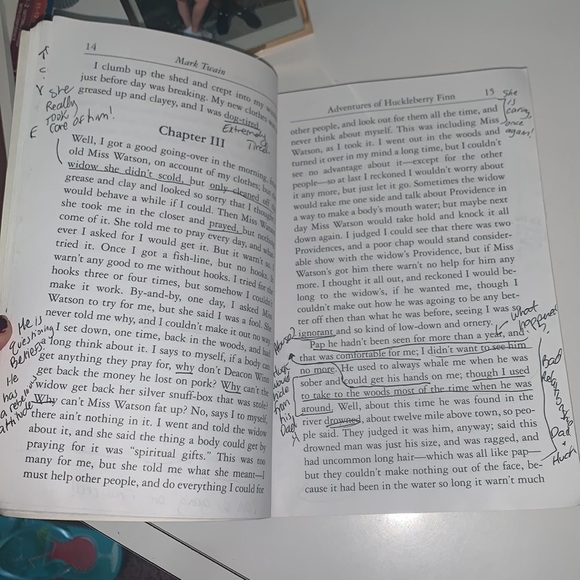 14
Mark Twain
I clumb up the shed and crept into my
just before day was breaking. My new clothes
greased up and clayey, and I was dog-tired
Extremely
Tired
She
Really
Took
Care of him!
Chapter III
Well, I got a good going-over in the morning,
old Miss Watson, on account of my clothes; but
widow she didn't scold, but only cleaned off
grease and clay and looked so sorry that I thought
would behave a while if I could. Then Miss Wat
she took me in the closet and prayed, but nothing
come of it. She told me to pray every day, and
ever I asked for I would get it. But it warn't
tried it. Once I got a fish-line, but no hooks.
warn't any good to me without hooks. I tried for
hooks three or four times, but somehow I couldn't
make it work. By-and-by, one day, I asked Miss
Watson to try for me, but she said I was a fool. She
never told me why, and I couldn't make it out no way.
I set down, one time, back in the woods, and had
long think about it. I says to myself, if a body can
get anything they pray for, why don't Deacon Winn
get back the money he lost on pork? Why can't the
widow get back her silver snuff-box that was stole?
Why can't Miss Watson fat up? No, says I to myself,
there ain't nothing in it. I went and told the widow
about it, and she said the thing a body could get by
praying for it was "spiritual gifts." This was too
many for me, but she told me what she meant—I
must help other people, and do everything I could for
He is
questioning
He
has
a
attitude
Adventures of Huckleberry Finn
15
She
is
caring
once
again!
other people, and look out for them all the time, and
never think about myself. This was including Miss
Watson, as I took it. I went out in the woods and
turned it over in my mind a long time, but I couldn't
see no advantage about it—except for the other
people—so at last I reckoned I wouldn't worry about
it any more, but just let it go. Sometimes the widow
would take me one side and talk about Providence in
a way to make a body's mouth water; but maybe next
day Miss Watson would take hold and knock it all
down again. I judged I could see that there was two
Providences, and a poor chap would stand consider-
able show with the widow's Providence, but if Miss
Watson's got him there warn't no help for him any
more. I thought it all out, and reckoned I would be-
long to the widow's, if he wanted me, though I
couldn't make out how he was agoing to be any bet-
ter off then than what he was before, seeing I was so
ignorant and so kind of low-down and ornery.
What
happened
?
Pap he hadn't been seen for more than a year, and
that was comfortable for me; I didn't want to see him
no more. He used to always whale me when he was
sober and could get his hands on me; though I used
to take to the woods most of the time when he was
around. Well, about this time he was found in the
river drowned, about twelve mile above town, so peo-
ple said. They judged it was him, anyway; said this
drowned man was just his size, and was ragged, and
had uncommon long hair—which was all like pap—
but they couldn't make nothing out of the face, be-
cause it had been in the water so long it warn't much
Huck
would
hide
from
Dad
Bad
Relationship
Dad
+
Huck